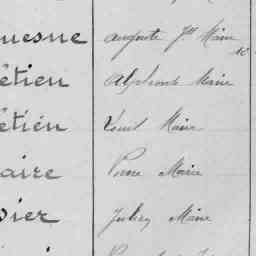 uesne Auguste Jph Marie
étien Alphonse Marie
étien Louis Marie
aire Pierre Marie
sier Julien Marie